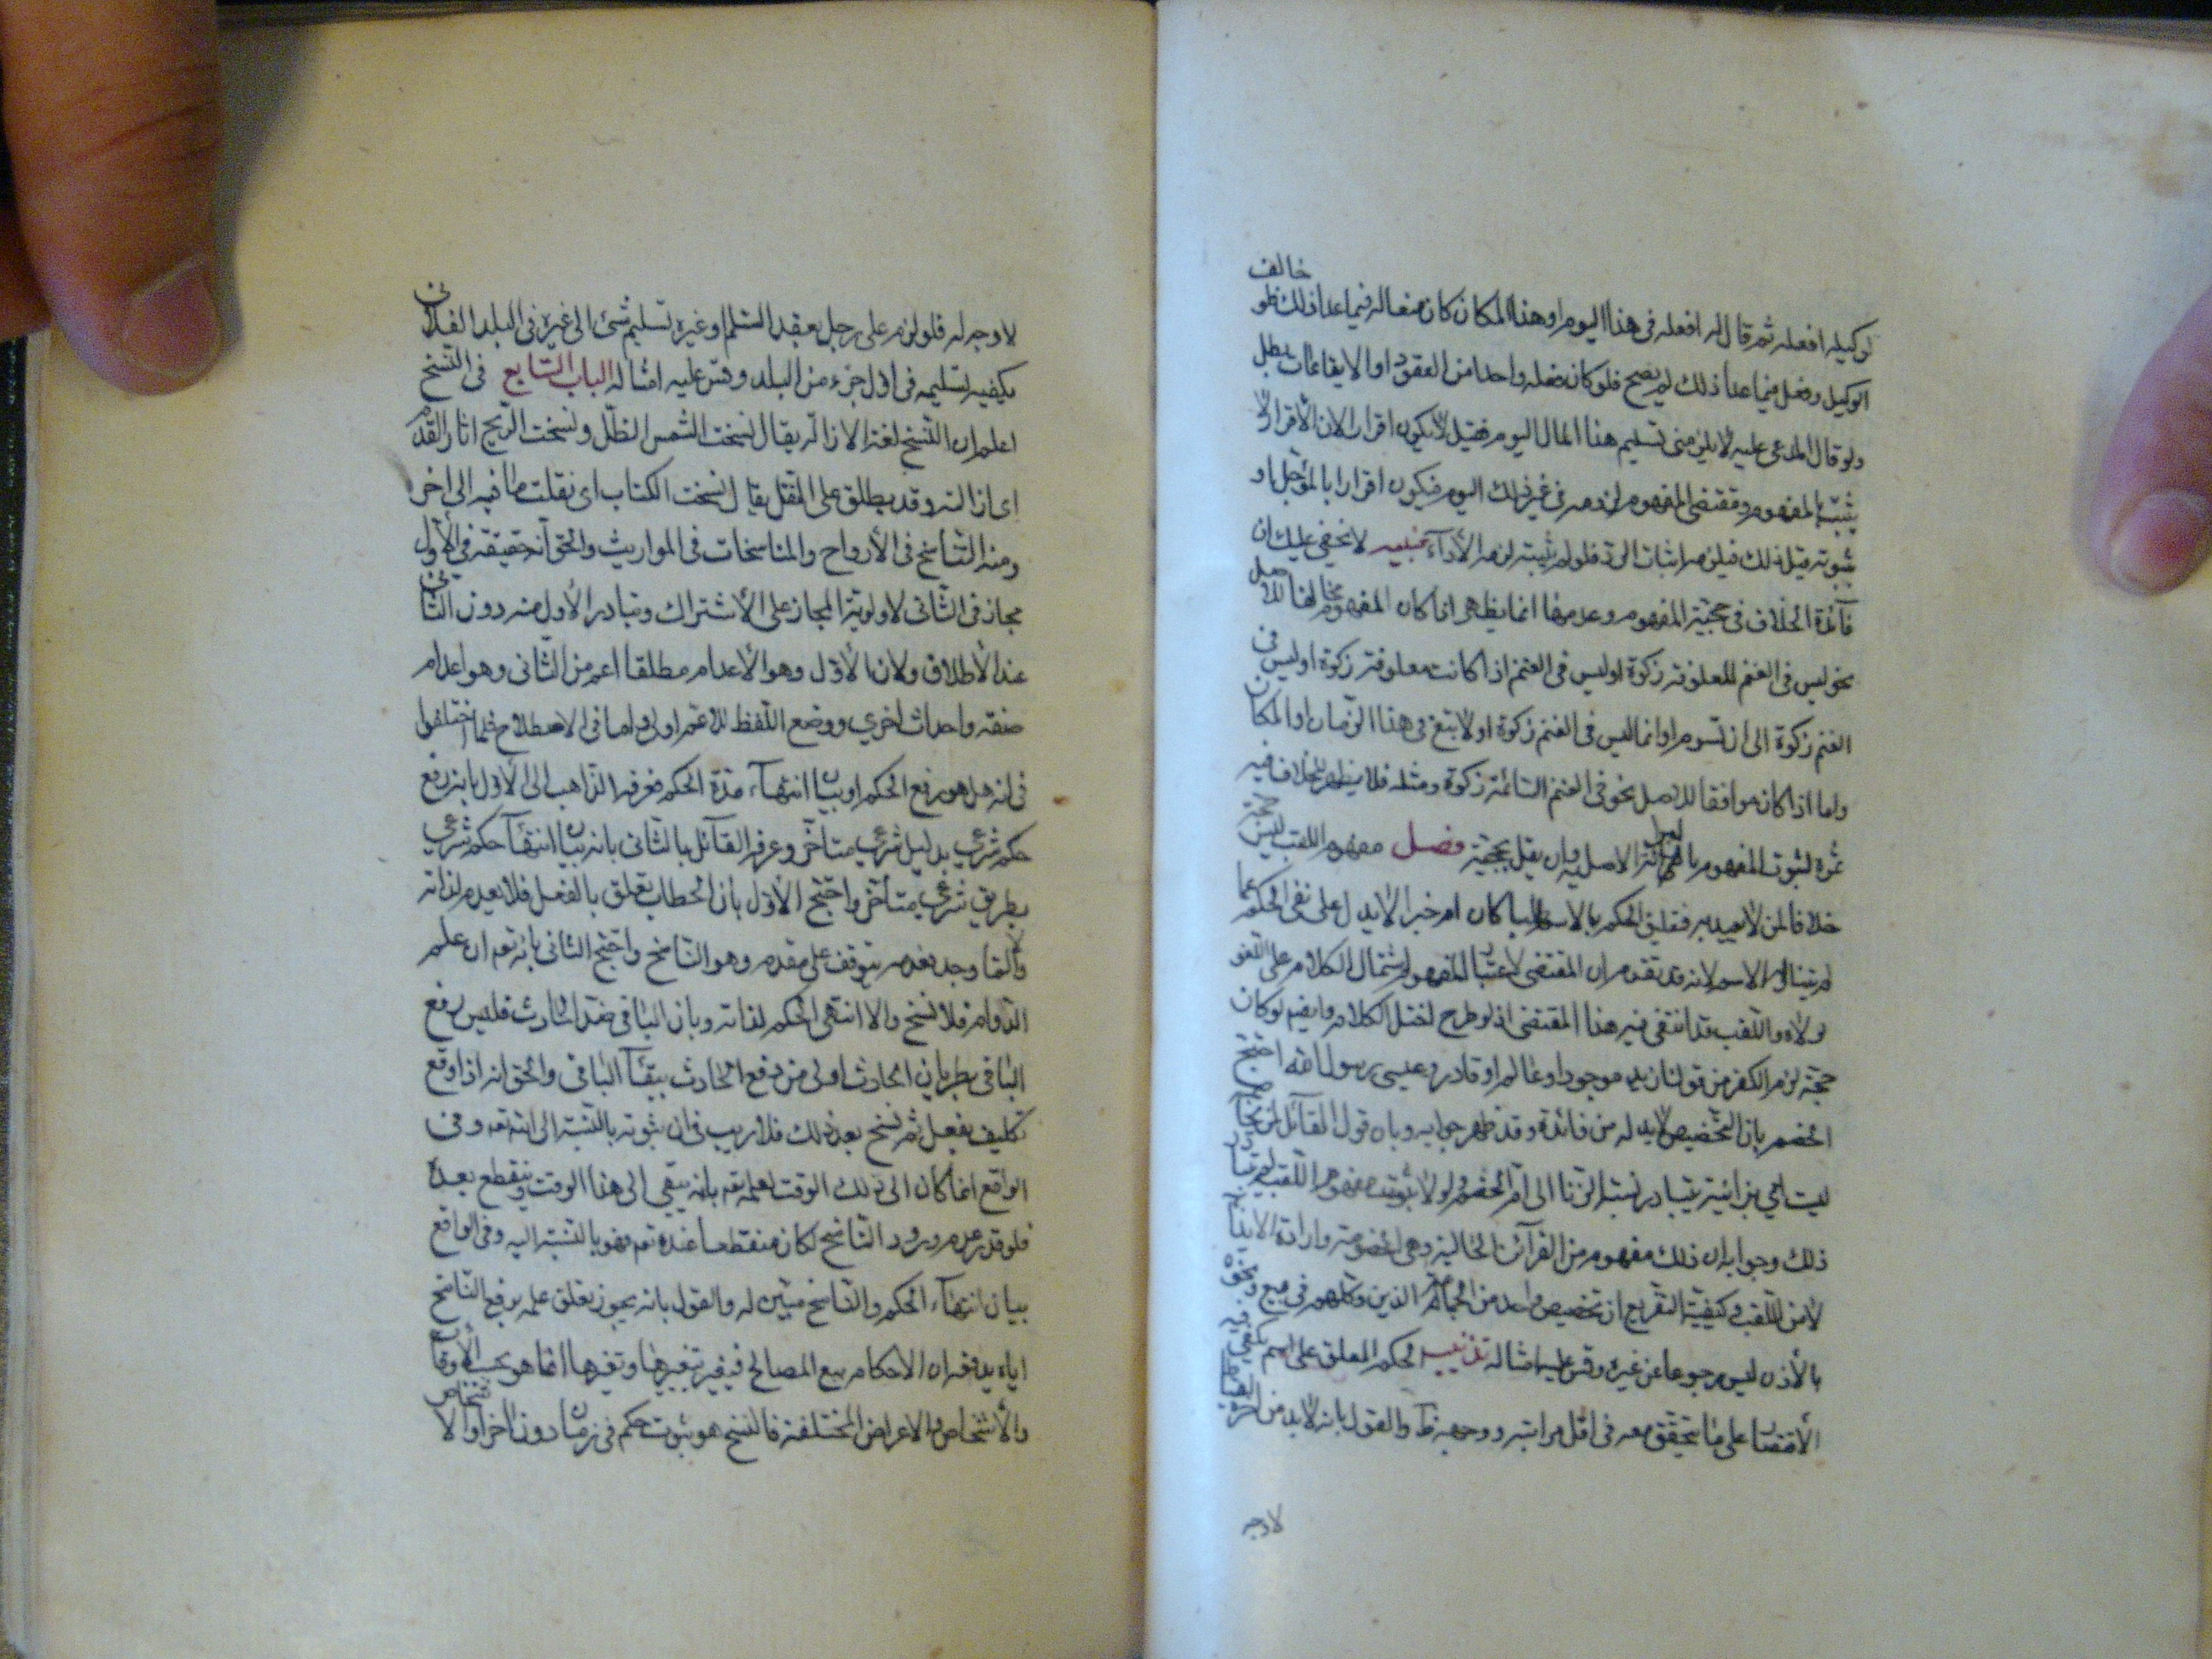 لوكيله افعله ثم قال له افعله في هذا اليوم او هذا المكان كان منعا له فيما عدا ذلك فلو خالف
الوكيل وفعل فيما عدا ذلك لم يصح فلو كان فعله واحدا من العقود او الايقاعات بطل
ولو قال المدعى عليه لا يلزمنى تسليم هذا المال اليوم فقيل لا يكون اقرارا لان الأقرار لا
يثبت بالمفهوم ومقتضى المفهوم لزومه في غير ذلك اليوم فيكون اقرارا بالمؤجل او
ثبوته قبل ذلك فيلزمه اثبات الرد فلو لم يثبته لزمه الأداء تنبيه لا يخفى عليك ان
فائدة الخلاف في حجية المفهوم وعدمها انما يظهر اذا كان المفهوم مخالفا للاصل
نحو ليس في الغنم المعلوفة زكوة او ليس في الغنم اذا كانت معلوفة زكوة او ليس في
الغنم زكوة الى ان تسوم او انما ليس في الغنم زكوة او لا تبع في هذا الزمان او المكان
واما اذا كان موافقا للاصل نحو في الغنم السائمة زكوة ومثله فلا يظهر للخلاف فيه
ثمرة لثبوت المفهوم بالبرائة الاصلية وان لم يقل بحجية فصل مفهوم اللقب ليس حجة
خلافا لمن لا يعبد به فتعليق الحكم بالاسم طلبا كان ام خبرا لا يدل على نفى الحكم عما
لم يتناوله الاسم لانه قد تقدم ان المقتضى لاعتبار المفهوم اشتمال الكلام على اللغو
لولاه واللقب قد انتفى فيه هذا المقتضى اذ لو طرح لاختل الكلام وايضا لو كان
حجة لزم الكفر من قولنا زيد موجود او عالم او قادر وعيسى رسول الله احتج
الخصم بان التخصيص لا بد له من فائدة وقد ظهر جوابه وبان قول القائل لمن يخاصمه
ليست امي بزانية يتبادر نسبة الزنا الى ام الخصم ولو لا ثبوت مفهوم اللقب لم يتبادر
ذلك وجوابه ان ذلك مفهوم من القرائن الحالية وهي الخصومة وارادة الايذاء
لا من اللقب وكيفية التفريع ان تخصيص واحد من الجماعة الذين وكلهم في بيع ونحوه
بالأذن ليس رجوعا عن غيره وقس عليه امثاله تذنيب الحكم المعلق على اسم يكفي فيه
الأقتصار على ما يتحقق معه في اقل مراتبه ووجهه ظ والقول بانه لا بد من
لا وجه
لا وجه له فلو لزم على رجل بعقد السلم او غيره تسليم شئ الى غيره في البلد الفلانى
يكفيه تسليمه في اول جزء من البلد وقس عليه امثاله الباب السابع في النسخ
اعلم ان النسخ لغة الازالة يقال نسخت الشمس الظل ونسخت الريح اثار القدم
اى ازالته وقد يطلق على النقل يقال نسخت الكتاب اى نقلت ما فيه الى اخر
ومنه التناسخ في الأرواح والمناسخات في المواريث والحق انه حقيقة في الأول
مجاز في الثانى لاولوية المجاز على الأشتراك وتبادر الأول منه دون الثانى
عند الأطلاق ولان الأول وهو الأعدام مطلقا اعم من الثانى وهو اعدام
صفة واحداث اخرى ووضع اللفظ للاعم اولى واما في الاصطلاح فلما اختلفوا
في انه هل هو رفع الحكم او بيان انتهاء مدة الحكم فعرفه الذاهب الى الأول بانه رفع
حكم شرعي بدليل شرعي متأخر وعرفه القائل بالثانى بانه بيان انتهاء حكم شرعي
بطريق شرعي متأخر واحتج الأول بان الخطاب تعلق بالفعل فلا يعدم لذاته
والا لما وجد فعدمه يتوقف على مقدم وهو الناسخ واحتج الثانى بانه تع ان علم
الدوام فلا نسخ والا انتهى الحكم لذاته وبان الباقى ضد الحادث فليس رفع
الباقى بطريان الحادث اولى من دفع الحادث ببقاء الباقى والحق انه اذا وقع
تكليف بفعل ثم نسخ بعد ذلك فلا ريب في ان ثبوته بالنسبة الى الله تع وفى
الواقع انما كان الى ذلك الوقت لعلمه تع بانه يبقى الى هذا الوقت وينقطع بعده
فلو قدر عدم ورود الناسخ لكان منقطعا عنده تع فهو بالنسبة اليه وفي الواقع
بيان انتهاء الحكم والناسخ مبين له والقول بانه يجوز تعلق علمه برفع الناسخ
اياه يدفعه ان الاحكام يتبع المصالح فيتغير بتغييرها وتغيرها انما هو بحسب الأوقات
والأشخاص والاعراض المختلفة فالنسخ هو ثبوت حكم في زمان دون اخر او لاشخاص